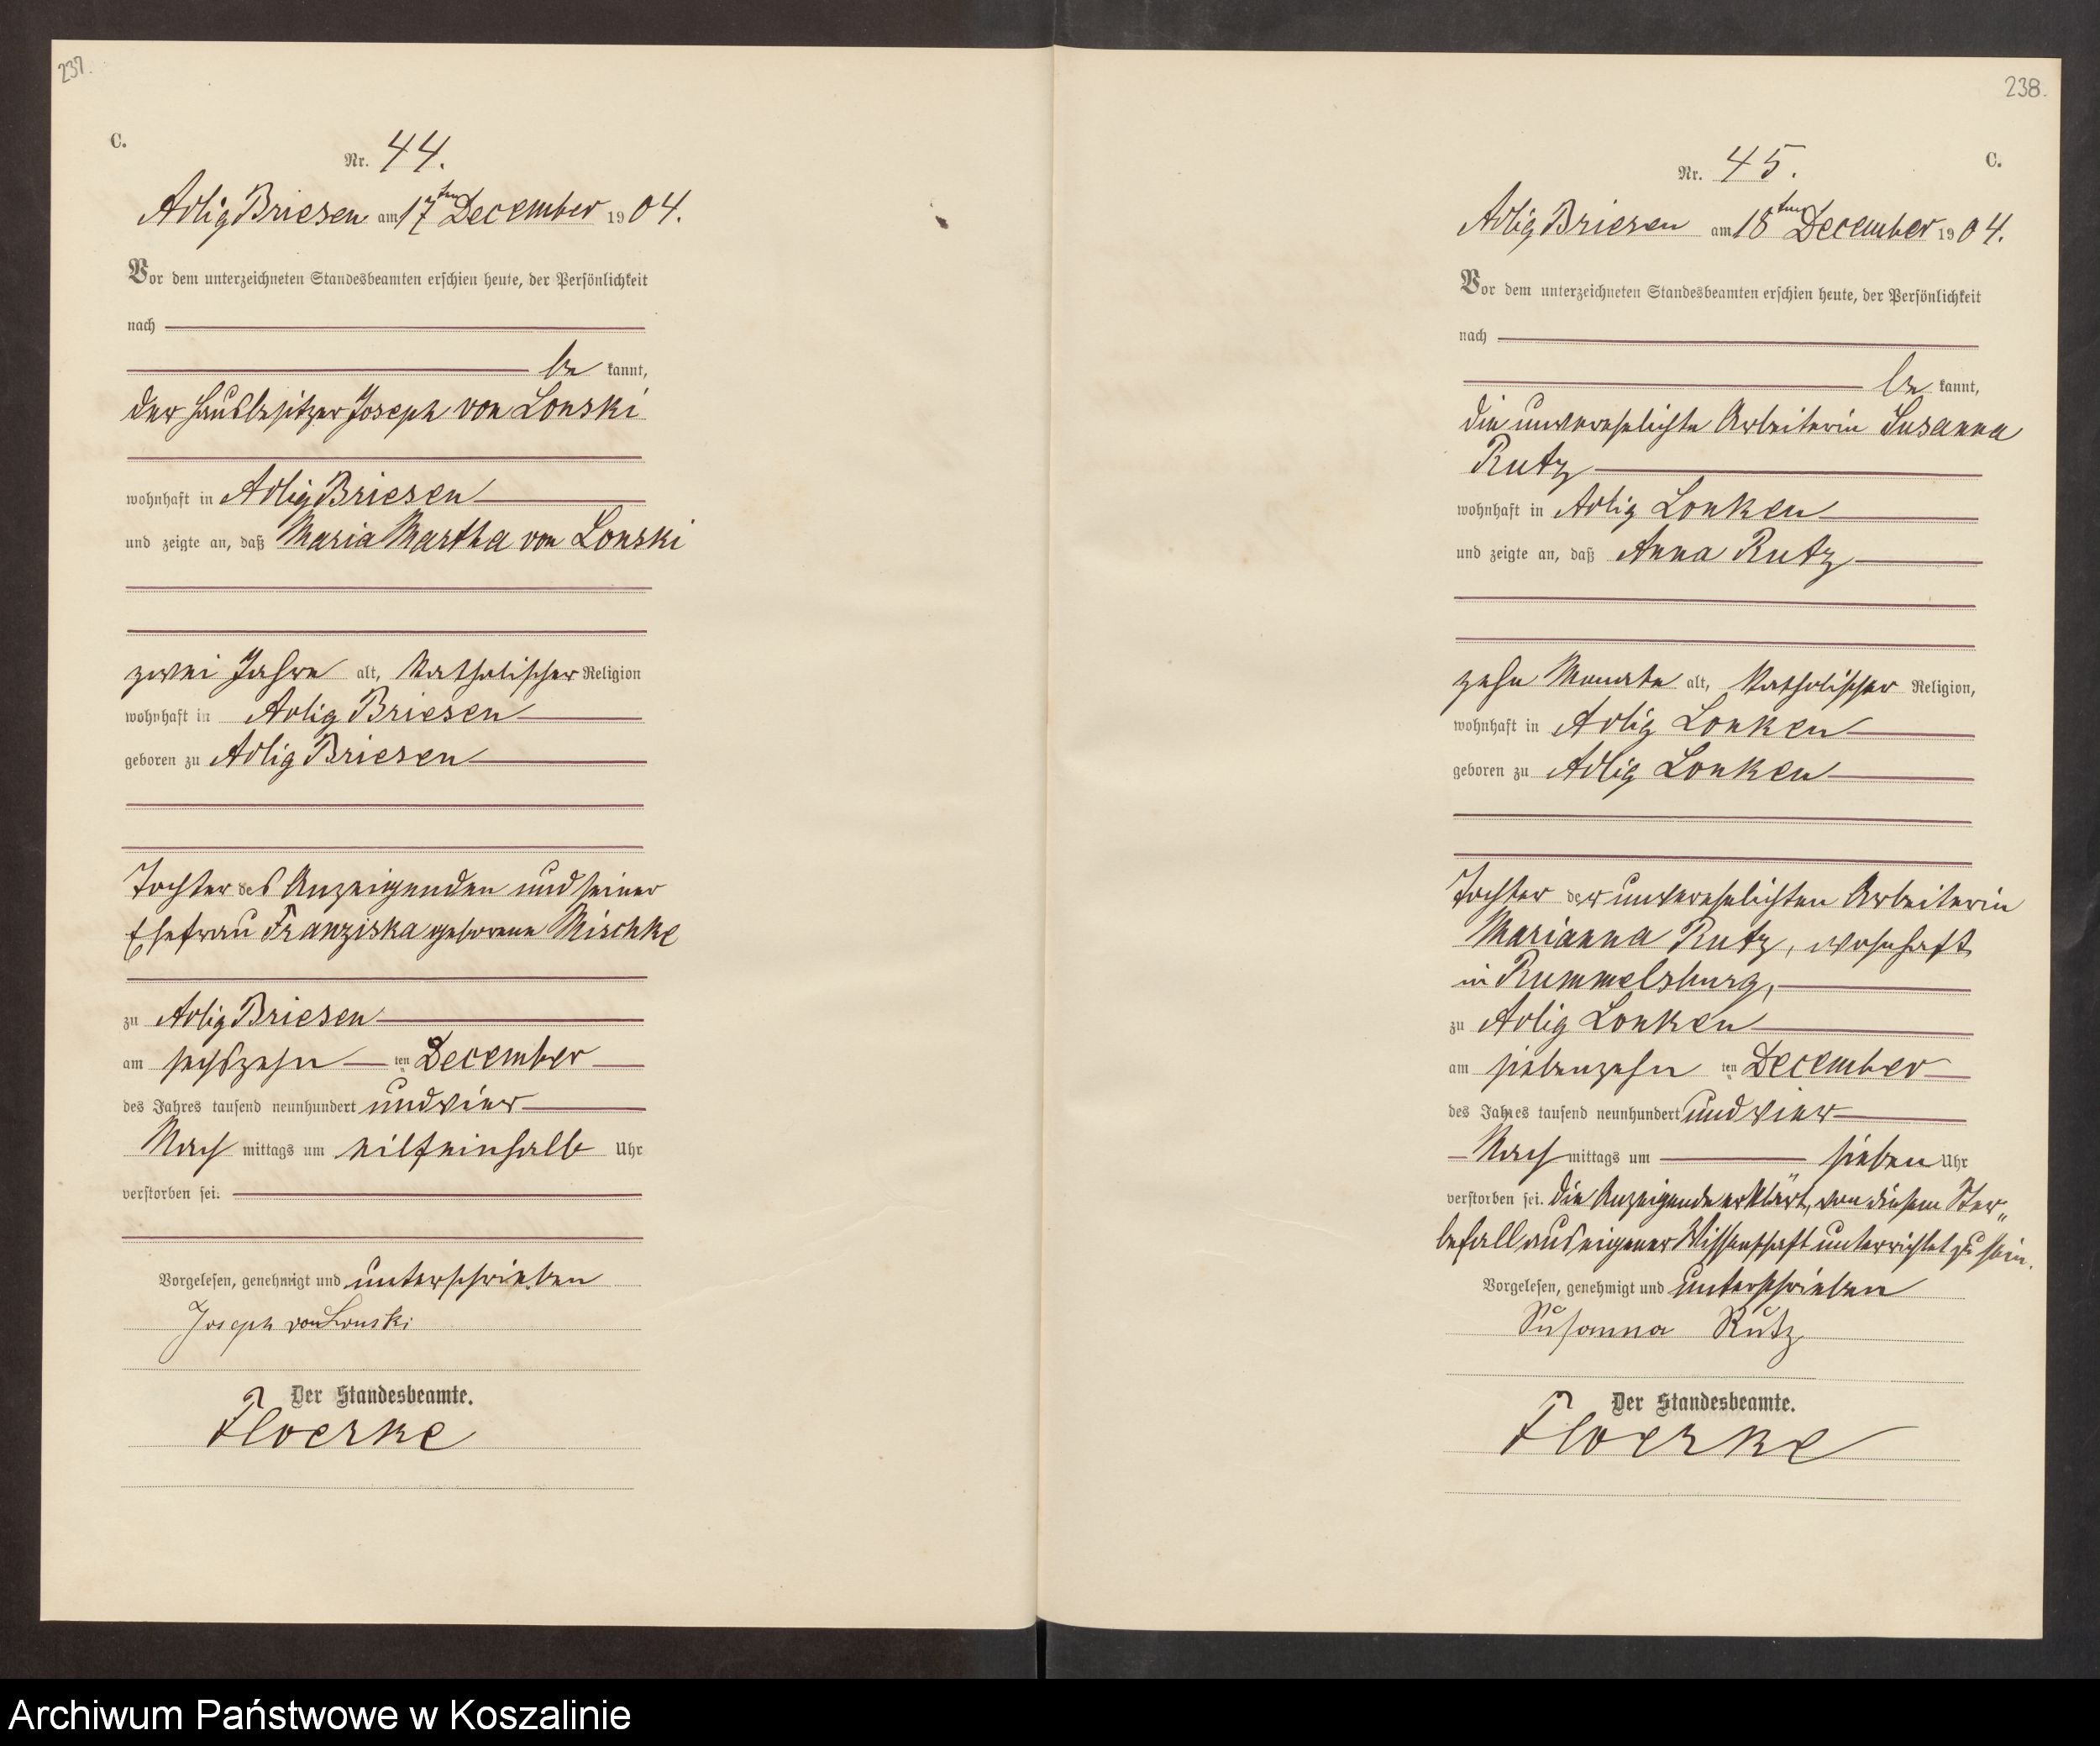 237.
C.
Nr. 44.
Adlig Briesen am 17ten December 1904.
Vor dem unterzeichneten Standesbeamten erschien heute, der Persönlichkeit
nach
be kannt,
der Hausbesitzer Joseph von Lonski
wohnhaft in Adlig Briesen
und zeigte an, daß Maria Martha von Lonski
zwei Jahre alt, katholischer Religion
wohnhaft in Adlig Briesen
geboren zu Adlig Briesen
Tochter des Anzeigenden und seiner
Ehefrau Franziska geborene Mischke
zu Adlig Briesen
am sechszehn ten December
des Jahres tausend neunhundert und vier
Nach mittags um eilfeinhalb Uhr
verstorben sei.
Vorgelesen, genehmigt und unterschrieben
Joseph von Lonski
Der Standesbeamte.
Floerke
238.
C.
Nr. 45.
Adlig Briesen am 18ten December 1904.
Vor dem unterzeichneten Standesbeamten erschien heute, der Persönlichkeit
nach
be kannt,
die unverehelichte Arbeiterin Susanna
Rutz
wohnhaft in Adlig Lonken
und zeigte an, daß Anna Rutz
zehn Monate alt, katholischer Religion,
wohnhaft in Adlig Lonken
geboren zu Adlig Lonken
Tochter der unverehelichten Arbeiterin
Marianna Rutz, wohnhaft
in Rummelsburg,
zu Adlig Lonken
am siebenzehn ten December
des Jahres tausend neunhundert und vier
Nach mittags um sieben Uhr
verstorben sei. Die Anzeigende erklärt, von diesem Ster„
befall aus eigener Wissenschaft unterrichtet zu sein.
Vorgelesen, genehmigt und unterschrieben
Susanna Rutz
Der Standesbeamte.
Floerke
Archiwum Państwowe w Koszalinie